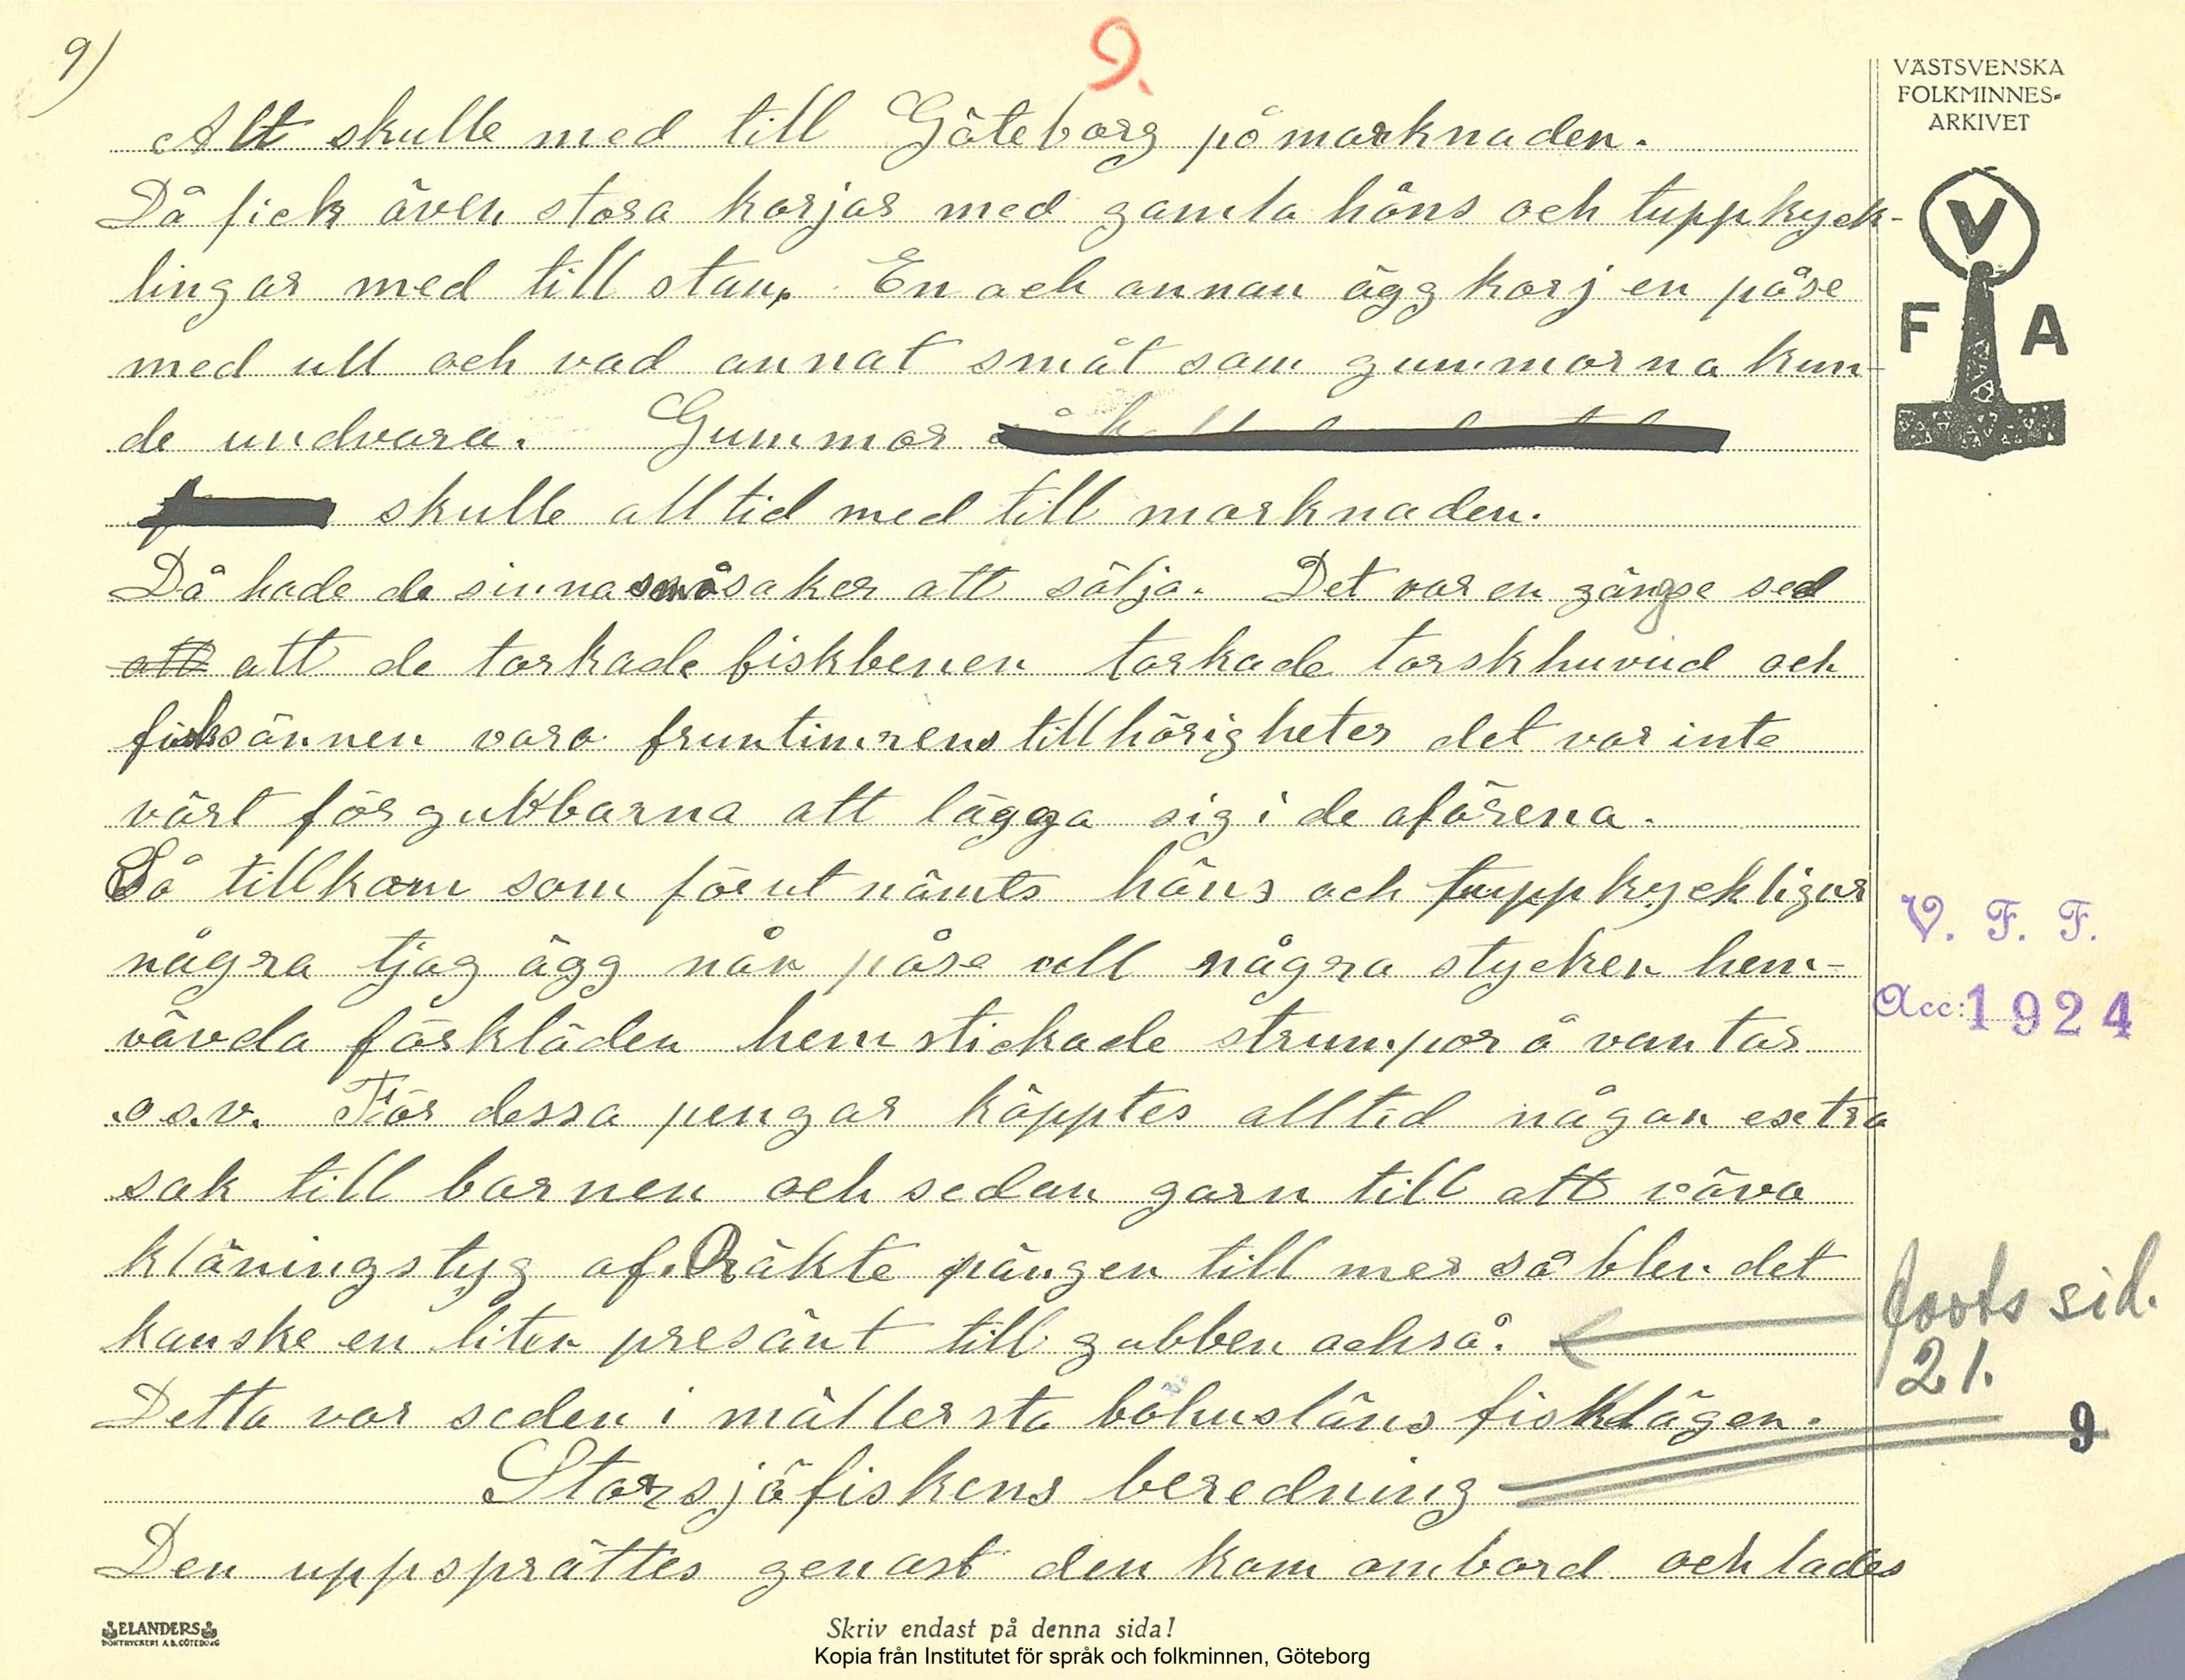 9)
9.
Allt skulle med till Göteborg på marknaden.
Då fick även stora korjar med gamla höns och tuppkyck-
lingar med till stan. En och annan äggkorj en påse
med ull och vad annat smått som gummorna kun-
de undvara. Gummor
skulle alltid med till marknaden.
Då hade de sinna småsaker att sälja. Det var en gängse sed
att att de torkade fiskbenen torkade torskhuvud och
fisksännen vara fruntimrens tillhörigheter det var inte
värt för gubbarna att lägga sig i de afärena.
Så tillkom som förut nämts höns och tuppkyckligar
några tjog ägg nån påse ull några stycken hem-
vävda förkläden hemstickade strumpor å vantar
o.s.v. För dessa pengar köpptes alltid någon extra
sak till barnen och sedan garn till att väva
kläningstyg af. Räkte pängen till mer så blev det
kanske en liten presänt till gubben också.
Detta var seden i mällersta bohusläns fisklägen.
Storsjöfiskens beredning
Den uppsprättes genast den kom ombord och lades
VÄSTSVENSKA
FOLKMINNES-
ARKIVET
V
F A
V. F. F.
Acc: 1924
forts sid.
21.
9
ELANDERS
BOKTRYCKERI A.B. GÖTEBORG
Skriv endast på denna sida!
Kopia från Institutet för språk och folkminnen, Göteborg